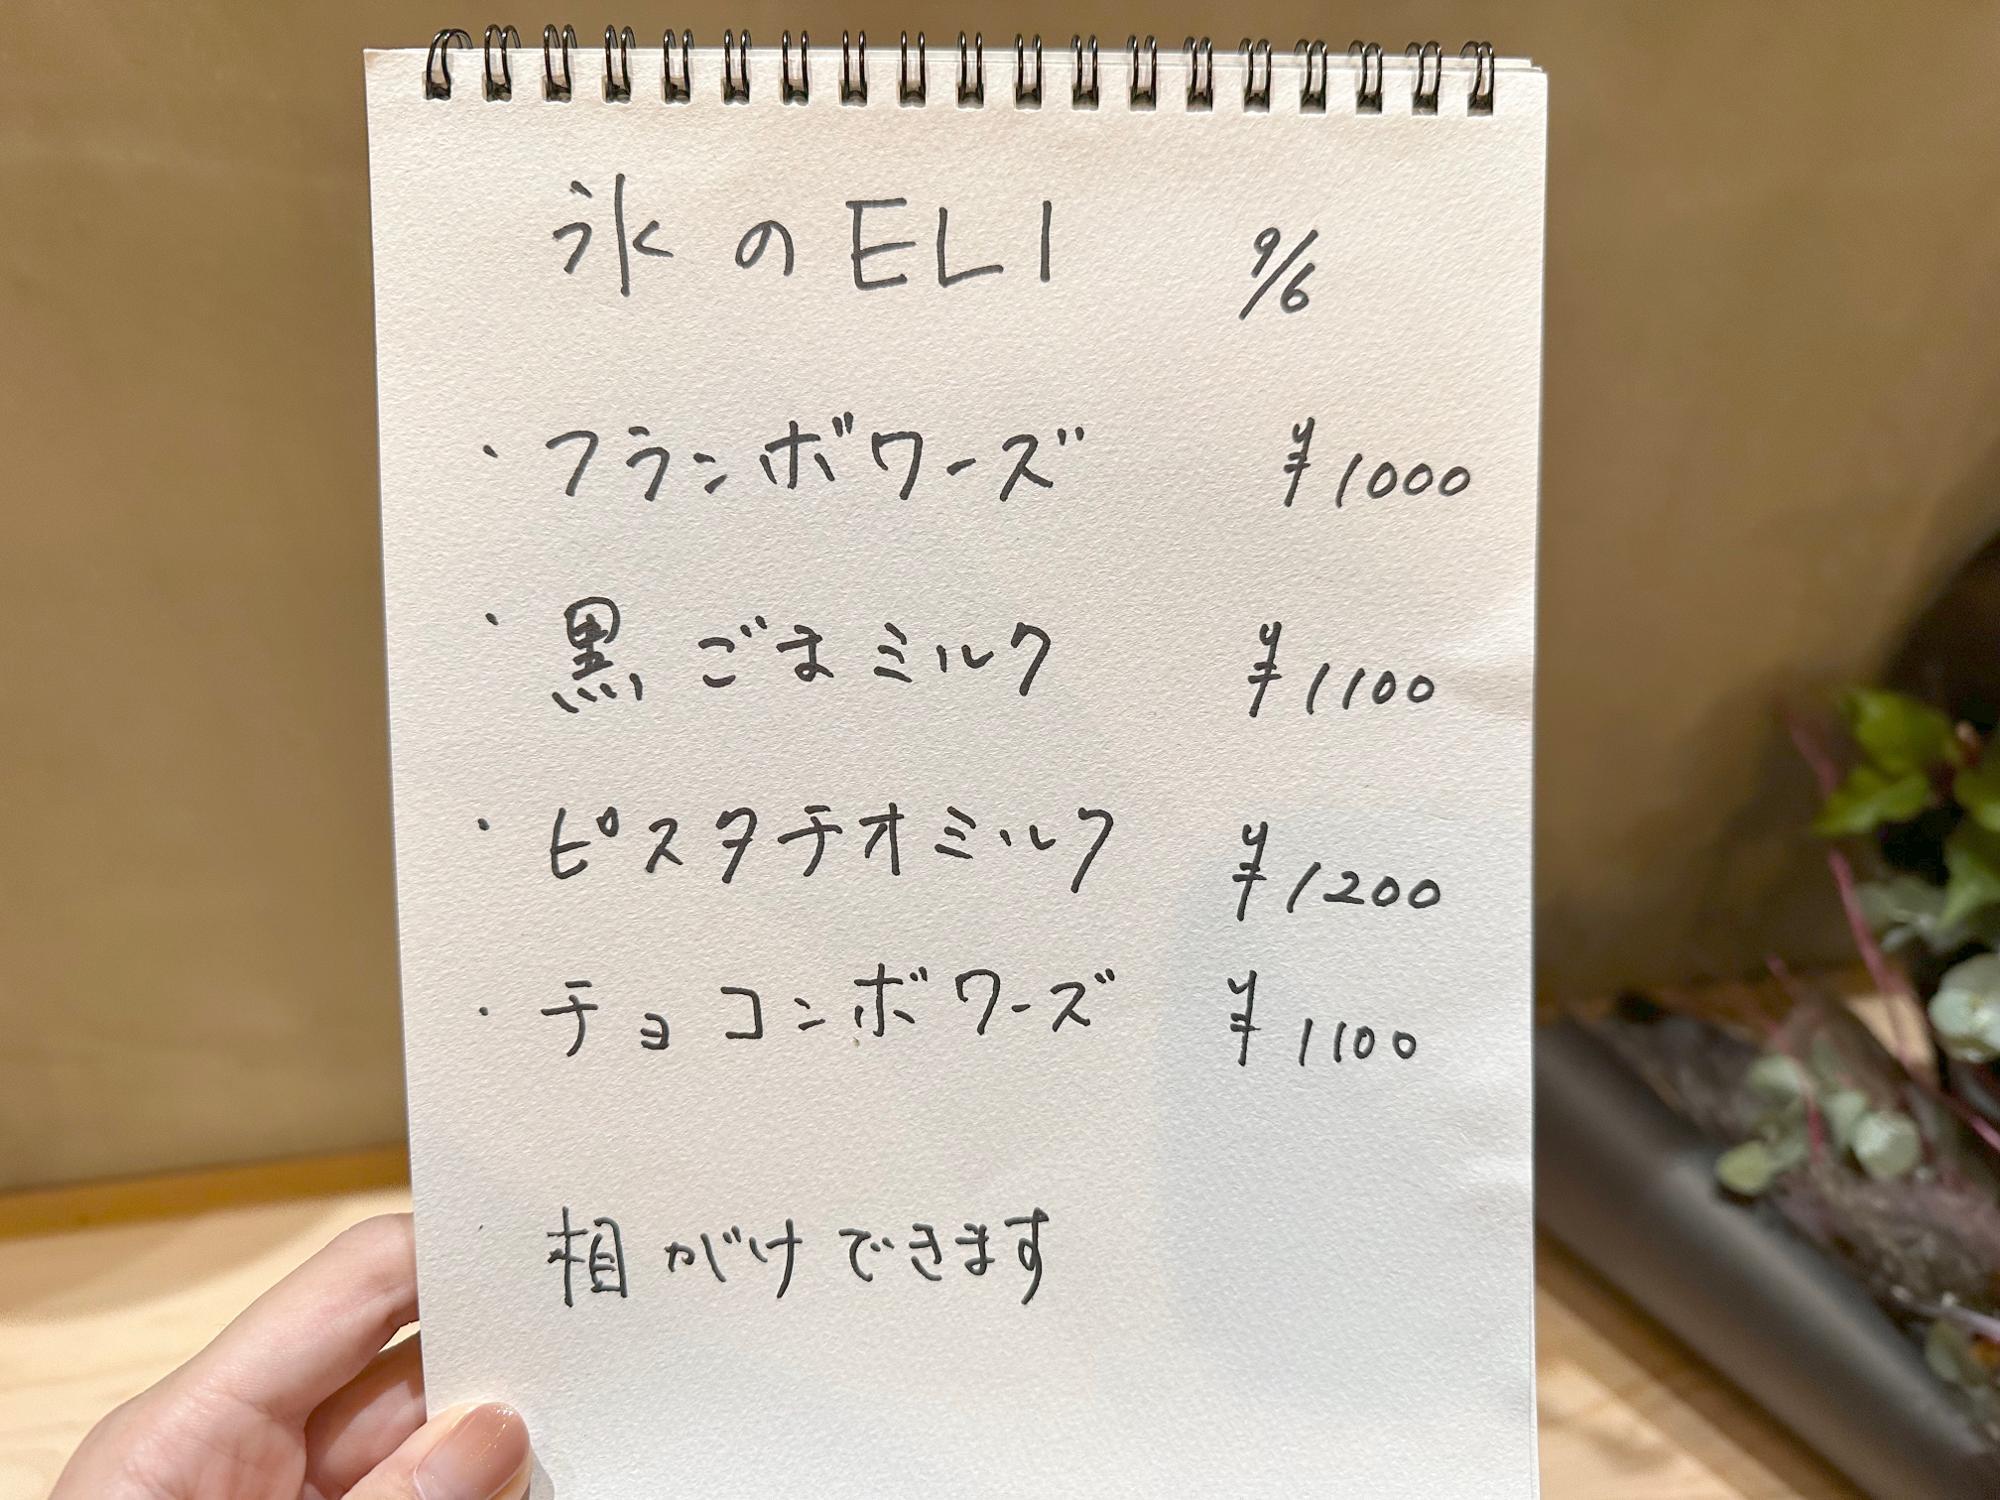 氷のELI 9/6
・フランボワーズ ¥1000
・黒ごまミルク ¥1100
・ピスタチオミルク ¥1200
・チョコンボワーズ ¥1100
相がけできます